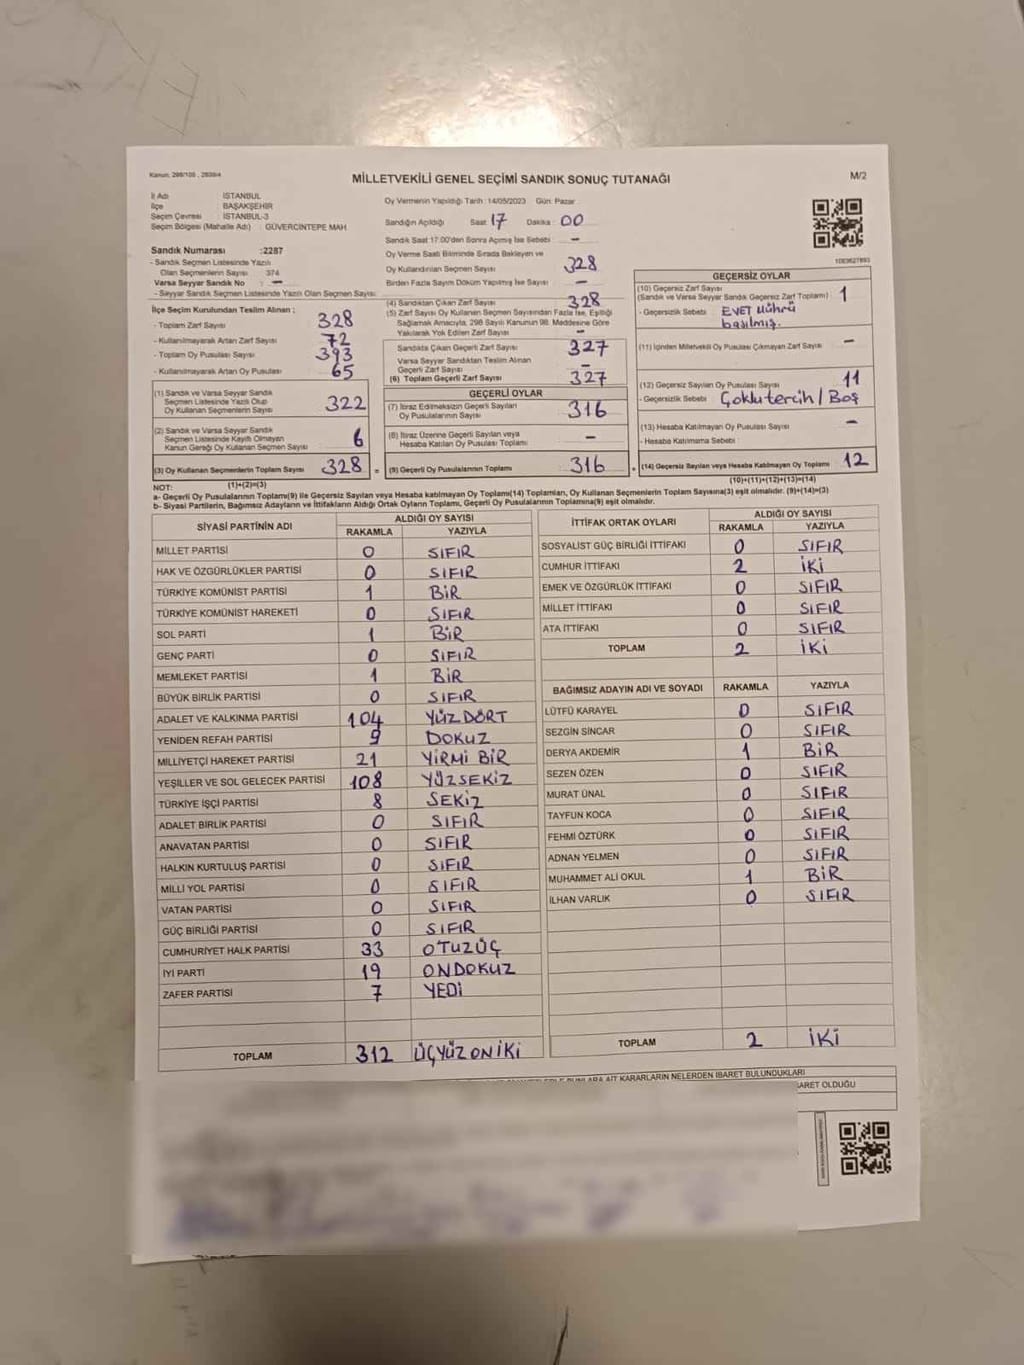 Kanun: 298/105, 2839/4
MİLLETVEKİLİ GENEL SEÇİMİ SANDIK SONUÇ TUTANAĞI
M/2
İl Adı : İSTANBUL
İlçe : BAŞAKŞEHİR
Seçim Çevresi : İSTANBUL-3
Seçim Bölgesi (Mahalle Adı) : GÜVERCİNTEPE MAH.
Sandık Numarası :2287
- Sandık Seçmen Listesinde Yazılı
Olan Seçmenlerin Sayısı : 374
Varsa Seyyar Sandık No : -
- Seyyar Sandık Seçmen Listesinde Yazılı Olan Seçmen Sayısı:
İlçe Seçim Kurulundan Teslim Alınan ;
- Toplam Zarf Sayısı 328
- Kullanılmayarak Artan Zarf Sayısı 72
- Toplam Oy Pusulası Sayısı 393
- Kullanılmayarak Artan Oy Pusulası 65
(1) Sandık ve Varsa Seyyar Sandık
Seçmen Listesinde Yazılı Olup
Oy Kullanan Seçmenlerin Sayısı 322
(2) Sandık ve Varsa Seyyar Sandık
Seçmen Listesinde Kayıtlı Olmayan
Kanun Gereği Oy Kullanan Seçmen Sayısı 6
(3) Oy Kullanan Seçmenlerin Toplam Sayısı 328 =
(1)+(2)=(3)
Oy Vermenin Yapıldığı Tarih :14/05/2023 Gün: Pazar
Sandığın Açıldığı Saat: 17 Dakika : 00
Sandık Saat 17:00'den Sonra Açılmış İse Sebebi : -
Oy Verme Saati Bitiminde Sırada Bekleyen ve
Oy Kullandırılan Seçmen Sayısı : 328
Birden Fazla Sayım Döküm Yapılmış İse Sayısı : -
(4) Sandıktan Çıkan Zarf Sayısı 328
(5) Zarf Sayısı Oy Kullanan Seçmen Sayısından Fazla İse, Eşitliği
Sağlamak Amacıyla, 298 Sayılı Kanunun 98. Maddesine Göre
Yakılarak Yok Edilen Zarf Sayısı -
Sandıkta Çıkan Geçerli Zarf Sayısı 327
Varsa Seyyar Sandıktan Teslim Alınan
Geçerli Zarf Sayısı -
(6) Toplam Geçerli Zarf Sayısı 327
GEÇERLİ OYLAR
(7) İtiraz Edilmeksizin Geçerli Sayılan
Oy Pusulalarının Sayısı 316
(8) İtiraz Üzerine Geçerli Sayılan veya
Hesaba Katılan Oy Pusulası Toplamı -
(9) Geçerli Oy Pusulalarının Toplamı 316 +
10E3627893
GEÇERSİZ OYLAR
(10) Geçersiz Zarf Sayısı
(Sandık ve Varsa Seyyar Sandık Geçersiz Zarf Toplamı) 1
- Geçersizlik Sebebi : EVET Mührü
basılmış.
(11) İçinden Milletvekili Oy Pusulası Çıkmayan Zarf Sayısı -
(12) Geçersiz Sayılan Oy Pusulası Sayısı 11
- Geçersizlik Sebebi : Çoklu tercih / Boş
(13) Hesaba Katılmayan Oy Pusulası Sayısı -
- Hesaba Katılmama Sebebi :
(14) Geçersiz Sayılan veya Hesaba Katılmayan Oy Toplamı 12
(10)+(11)+(12)+(13)=(14)
NOT:
a- Geçerli Oy Pusulalarının Toplamı(9) ile Geçersiz Sayılan veya Hesaba katılmayan Oy Toplamı(14) Toplamları, Oy Kullanan Seçmenlerin Toplam Sayısına(3) eşit olmalıdır. (9)+(14)=(3)
b- Siyasi Partilerin, Bağımsız Adayların ve İttifakların Aldığı Ortak Oyların Toplamı, Geçerli Oy Pusulalarının Toplamına(9) eşit olmalıdır.
SİYASİ PARTİNİN ADI ALDIĞI OY SAYISI
RAKAMLA YAZIYLA
MİLLET PARTİSİ 0 SIFIR
HAK VE ÖZGÜRLÜKLER PARTİSİ 0 SIFIR
TÜRKİYE KOMÜNİST PARTİSİ 1 BİR
TÜRKİYE KOMÜNİST HAREKETİ 0 SIFIR
SOL PARTİ 1 BİR
GENÇ PARTİ 0 SIFIR
MEMLEKET PARTİSİ 1 BİR
BÜYÜK BİRLİK PARTİSİ 0 SIFIR
ADALET VE KALKINMA PARTİSİ 104 YÜZ DÖRT
YENİDEN REFAH PARTİSİ 9 DOKUZ
MİLLİYETÇİ HAREKET PARTİSİ 21 YİRMİ BİR
YEŞİLLER VE SOL GELECEK PARTİSİ 108 YÜZSEKİZ
TÜRKİYE İŞÇİ PARTİSİ 8 SEKİZ
ADALET BİRLİK PARTİSİ 0 SIFIR
ANAVATAN PARTİSİ 0 SIFIR
HALKIN KURTULUŞ PARTİSİ 0 SIFIR
MİLLİ YOL PARTİSİ 0 SIFIR
VATAN PARTİSİ 0 SIFIR
GÜÇ BİRLİĞİ PARTİSİ 0 SIFIR
CUMHURİYET HALK PARTİSİ 33 OTUZÜÇ
İYİ PARTİ 19 ONDOKUZ
ZAFER PARTİSİ 7 YEDİ
TOPLAM 312 ÜÇYÜZ ONİKİ
İTTİFAK ORTAK OYLARI ALDIĞI OY SAYISI
RAKAMLA YAZIYLA
SOSYALİST GÜÇ BİRLİĞİ İTTİFAKI 0 SIFIR
CUMHUR İTTİFAKI 2 İKİ
EMEK VE ÖZGÜRLÜK İTTİFAKI 0 SIFIR
MİLLET İTTİFAKI 0 SIFIR
ATA İTTİFAKI 0 SIFIR
TOPLAM 2 İKİ
BAĞIMSIZ ADAYIN ADI VE SOYADI RAKAMLA YAZIYLA
LÜTFÜ KARAYEL 0 SIFIR
SEZGİN SİNCAR 0 SIFIR
DERYA AKDEMİR 1 BİR
SEZEN ÖZEN 0 SIFIR
MURAT ÜNAL 0 SIFIR
TAYFUN KOCA 0 SIFIR
FEHMİ ÖZTÜRK 0 SIFIR
ADNAN YELMEN 0 SIFIR
MUHAMMET ALİ OKUL 1 BİR
İLHAN VARLIK 0 SIFIR
TOPLAM 2 İKİ
BUNLARA AİT KARARLARIN NELERDEN İBARET BULUNDUKLARI
BARET OLDUĞU